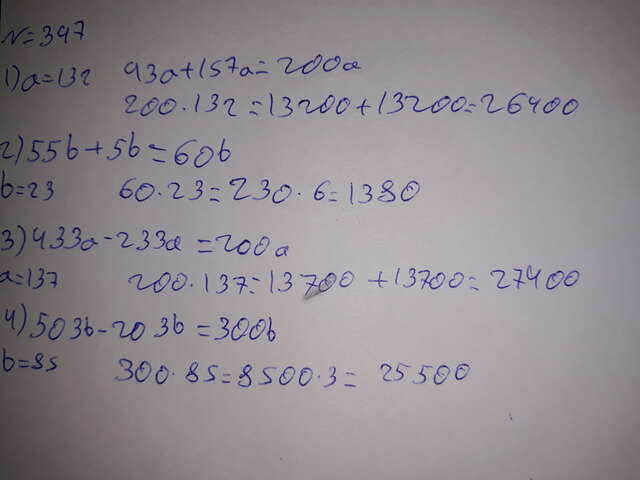 N=347
1) a=132 43a+157a=200a
200·132=13200+13200=26400
2) 55b+5b=60b
b=23 60·23=230·6=1380
3) 433a-233a=200a
a=137 200·137=13700+13700=27400
4) 503b-203b=300b
b=85 300·85=8500·3=25500